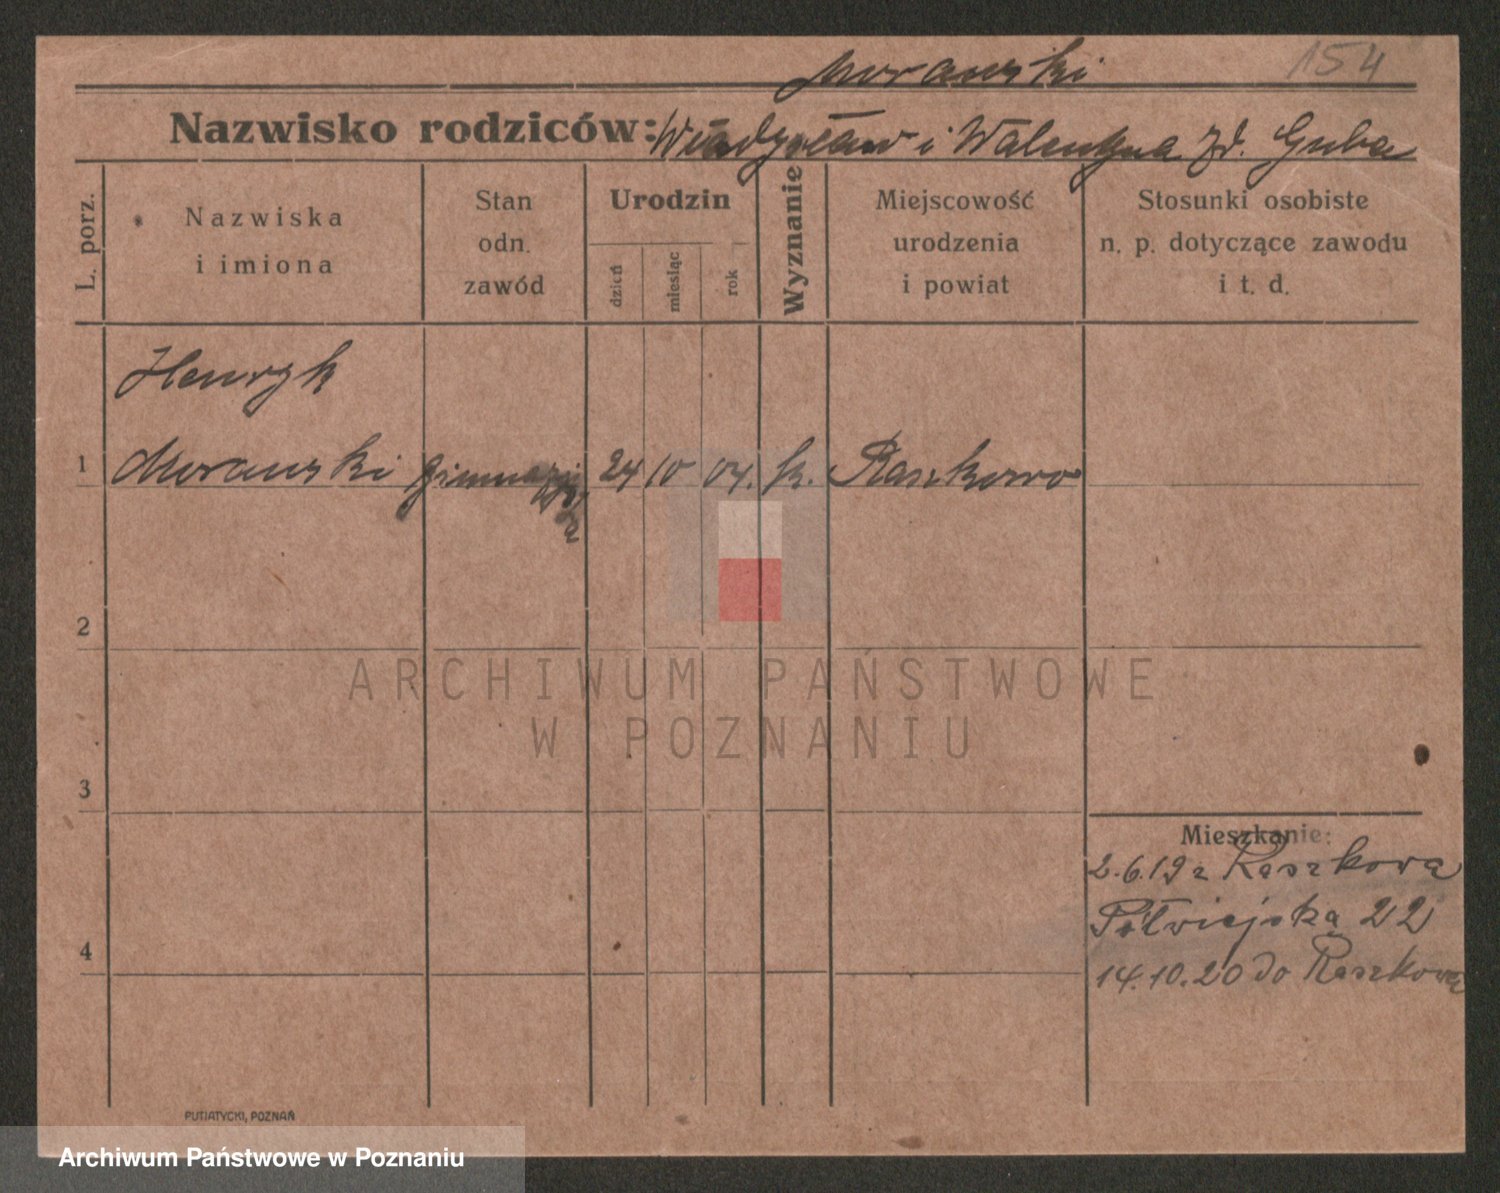 154
Morawski
Nazwisko rodziców: Władysław i Walentyna zd. Guba
L. porz.
Nazwiska
i imiona
Stan
odn.
zawód
Urodzin
dzień
miesiąc
rok
Wyznanie
Miejscowość
urodzenia
i powiat
Stosunki osobiste
n. p. dotyczące zawodu
i t. d.
Henryk
1 Morawski 24 10 04. k. Raszkowo
2
3
4
Mieszkanie:
2.6.19 z Raszkowa
Półwiejska 22
14.10.20 do Raszkowa
PUTIATYCKI, POZNAŃ
ARCHIWUM PAŃSTWOWE
W POZNANIU
Archiwum Państwowe w Poznaniu